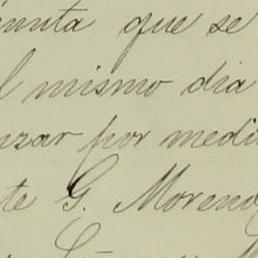 inuta que se
l mismo dia
nzar por medi
te G. Moreno